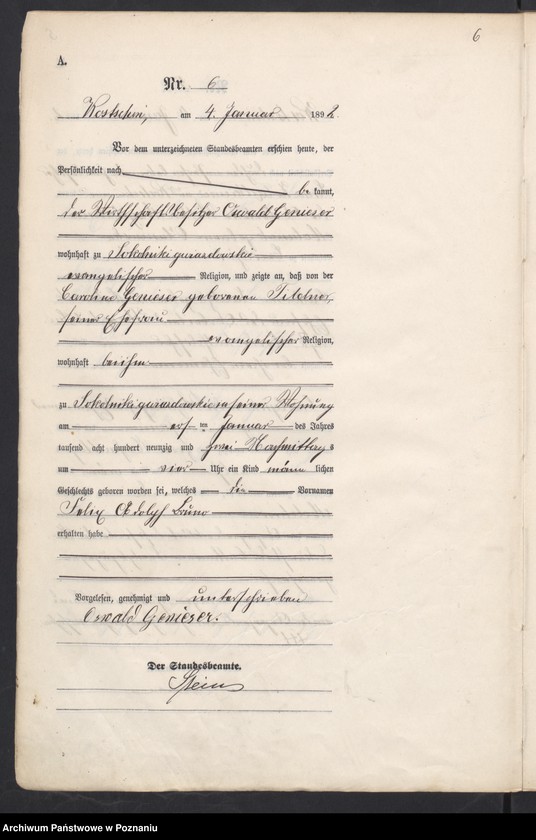 6
A.
Nr. 6
Kostschin, am 4. Januar 1892.
Vor dem unterzeichneten Standesbeamten erschien heute, der
Persönlichkeit nach
be kannt,
der Wirthschaftsbesitzer Oswald Genieser
wohnhaft zu Sokolniki gwiazdowskie
evangelischer Religion, und zeigte an, daß von der
Caroline Genieser geborenen
seiner Ehefrau
evangelischer Religion,
wohnhaft bei ihm
zu Sokolniki gwiazdowskie in seiner Wohnung
am ersten Januar des Jahres
tausend acht hundert neunzig und zwei Nachmittags
um vier Uhr ein Kind männlichen
Geschlechts geboren worden sei, welches die Vornamen
Felix Adolph Bruno
erhalten habe
Vorgelesen, genehmigt und unterschrieben
Oswald Genieser.
Der Standesbeamte.
Archiwum Państwowe w Poznaniu